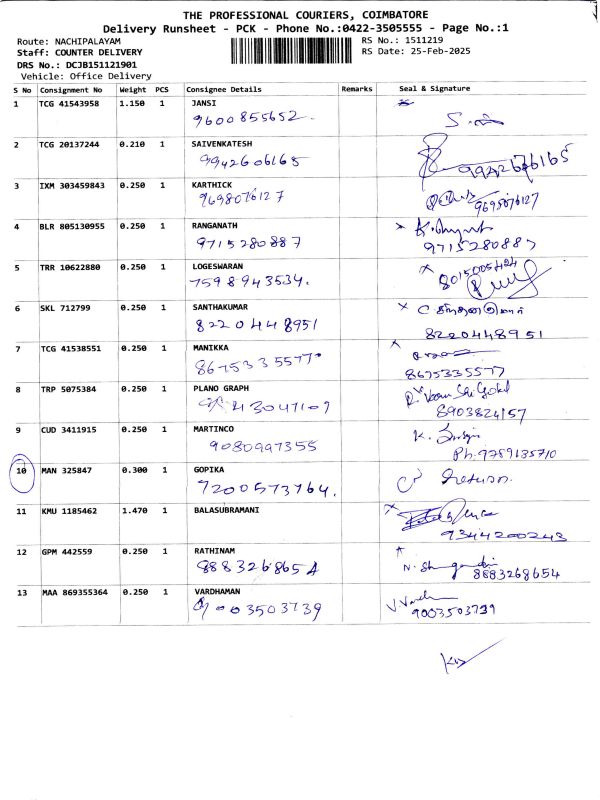 THE PROFESSIONAL COURIERS, COIMBATORE
Delivery Runsheet - PCK - Phone No.:0422-3505555 - Page No.:1
Route: NACHIPALAYAM
Staff: COUNTER DELIVERY
DRS No.: DCJB151121901
Vehicle: Office Delivery
RS No.: 1511219
RS Date: 25-Feb-2025
S No Consignment No Weight PCS Consignee Details Remarks Seal & Signature
1 TCG 41543958 1.150 1 JANSI
9600855652.
2 TCG 20137244 0.210 1 SAIVENKATESH
9942606165 9942676165
3 IXM 303459843 0.250 1 KARTHICK
9698076127 9698076127
4 BLR 805130955 0.250 1 RANGANATH
9715280887 9715280887
5 TRR 10622880 0.250 1 LOGESWARAN
7598943534. 8015005424
6 SKL 712799 0.250 1 SANTHAKUMAR
8220448951 8220448951
7 TCG 41538551 0.250 1 MANIKKA
8675335577 8675335577
8 TRP 5075384 0.250 1 PLANO GRAPH
8903824157
9 CUD 3411915 0.250 1 MARTINCO
9080997355 Ph. 9789135710
10 MAN 325847 0.300 1 GOPIKA
7200573764. return.
11 KMU 1185462 1.470 1 BALASUBRAMANI
9344200243
12 GPM 442559 0.250 1 RATHINAM
8883268654 8883268654
13 MAA 869355364 0.250 1 VARDHAMAN
9003503739 9003503739